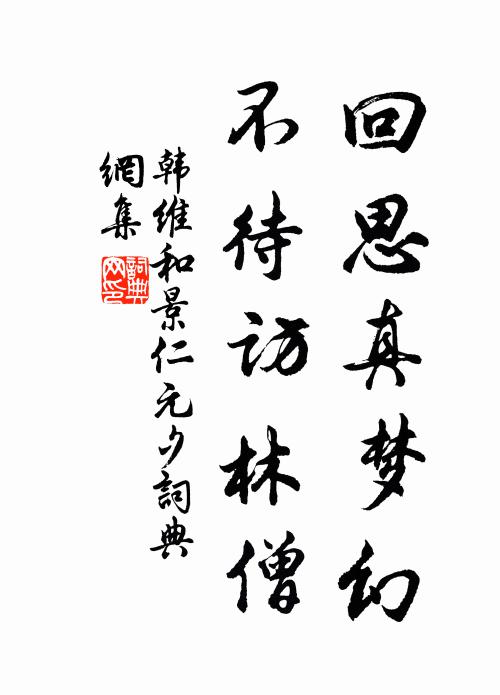 回思真梦幻
不待访林僧
韩维和景仁元夕詞典
網集
詞典
网印